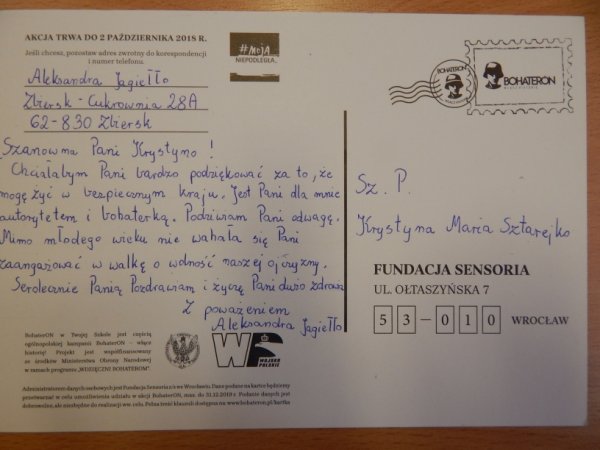 AKCJA TRWA DO 2 PAŹDZIERNIKA 2018 R.
Jeśli chcesz, pozostaw adres zwrotny do korespondencji
i numer telefonu.
Aleksandra Jagiełło
Zbiersk-Cukrownia 28A
62-830 Zbiersk
#MOJA
NIEPODLEGŁA
Szanowna Pani Krystyno!
Chciałabym Pani bardzo podziękować za to, że
mogę żyć w bezpiecznym kraju. Jest Pani dla mnie
autorytetem i bohaterką. Podziwiam Pani odwagę.
Mimo młodego wieku nie wahała się Pani
zaangażować w walkę o wolność naszej ojczyzny.
Serdecznie Panią Pozdrawiam i życzę Pani dużo zdrowia
Z poważeniem
Aleksandra Jagiełło
BohaterON w Twojej Szkole jest częścią
ogólnopolskiej kampanii BohaterON – włącz
historię! Projekt jest współfinansowany
ze środków Ministerstwa Obrony Narodowej
w ramach programu „WDZIĘCZNI BOHATEROM".
WOJSKO
POLSKIE
Administratorem danych osobowych jest Fundacja Sensoria z/s we Wrocławiu. Dane podane na kartce będziemy
przetwarzać w celu umożliwienia udziału w akcji BohaterON, max. do 31.12.2019 r. Podanie danych jest
dobrowolne, ale niezbędne do realizacji ww. celu. Pełna treść klauzuli dostępna na: www.bohateron.pl/kartka
BOHATERON
BOHATERON
Sz. P.
Krystyna Maria Sztarejko
FUNDACJA SENSORIA
UL. OŁTASZYŃSKA 7
53-010 WROCŁAW